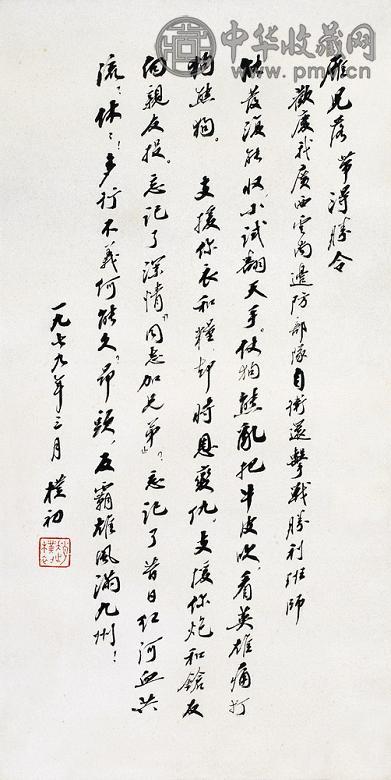 中华收藏网
雁兒落 帶得勝令
歡慶我廣西雲南邊防部隊自衛還擊戰勝利班師
發須能收,小試翻天手。仗狗熊亂把牛皮吹,看英雄痛打
狗熊狗。 支援你衣和糧,却將恩變仇,支援你炮和鎗,反
向親友投。忘記了深情“同志加兄弟”,忘記了昔日紅河血共
流。休休!多行不義何能久。昂頭,反霸雄風滿九州!
一九七九年三月 樸初